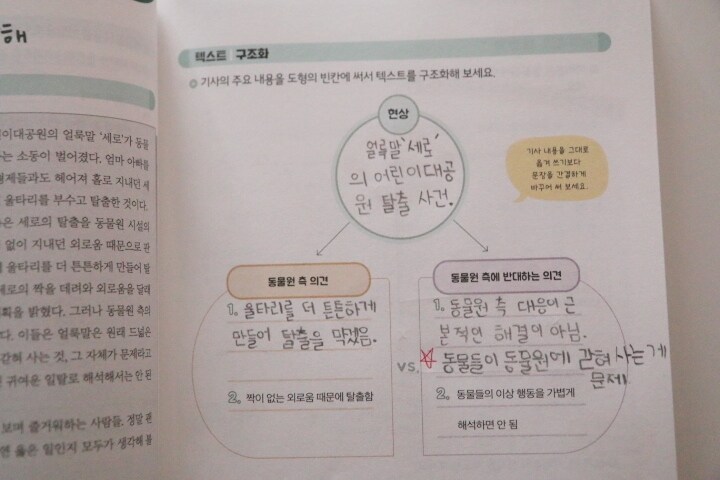 해
이대공원의 얼룩말 '세로'가 동물
는 소동이 벌어졌다. 엄마 아빠를
형제들과도 헤어져 홀로 지내던 세
울타리를 부수고 탈출한 것이다.
은 세로의 탈출을 동물원 시설의
없이 지내던 외로움 때문으로 판
울타리를 더 튼튼하게 만들어 탈
세로의 짝을 데려와 외로움을 달래
획을 밝혔다. 그러나 동물원 측의
다. 이들은 얼룩말은 원래 드넓은
갇혀 사는 것, 그 자체가 문제라고
귀여운 일탈로 해석해서는 안 된
보며 즐거워하는 사람들. 정말 괜
면 옳은 일인지 모두가 생각해 볼
텍스트 구조화
기사의 주요 내용을 도형의 빈칸에 써서 텍스트를 구조화해 보세요.
현상
얼룩말 '세로'
의 어린이대공
원 탈출 사건.
기사 내용을 그대로
옮겨 쓰기보다
문장을 간결하게
바꾸어 써 보세요.
동물원 측 의견
1. 울타리를 더 튼튼하게
만들어 탈출을 막겠음.
2. 짝이 없는 외로움 때문에 탈출함
vs.
동물원 측에 반대하는 의견
1. 동물원 측 대응이 근
본적인 해결이 아님.
☆ 동물들이 동물원에 갇혀 사는 게
문제.
2. 동물들의 이상 행동을 가볍게
해석하면 안 됨